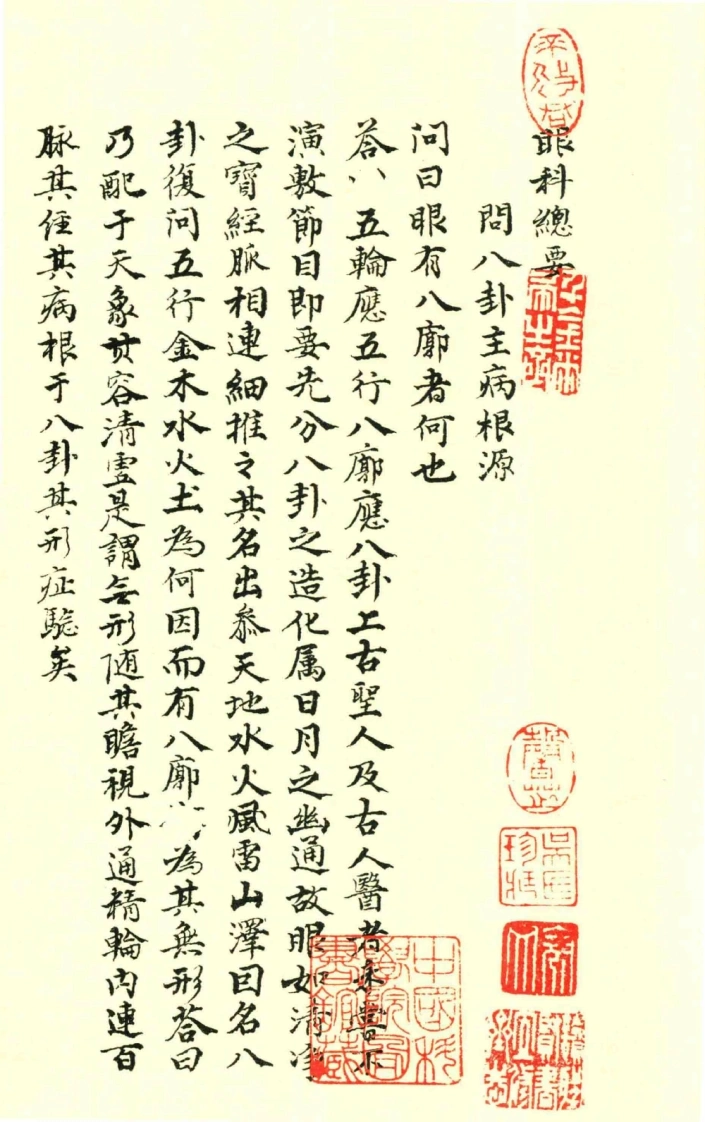 眼科總要
問八卦主病根源
问曰眼有八廓者何也
荅 五輪應五行八廓應八卦上古聖人及古人醫者未嘗不
演敷節目即要先分八卦之造化属日月之幽通故眼如清净
之寳經脈相連細推之其名出叅天地水火風雷山澤曰名八
卦復问五行金木水火土為何因而有八廓 為其無形荅曰
乃配于天象其容清虛是謂無形随其瞻視外通精輪内連百
脉其经其病根于八卦其形症驗矣
中國科學院圖書館藏